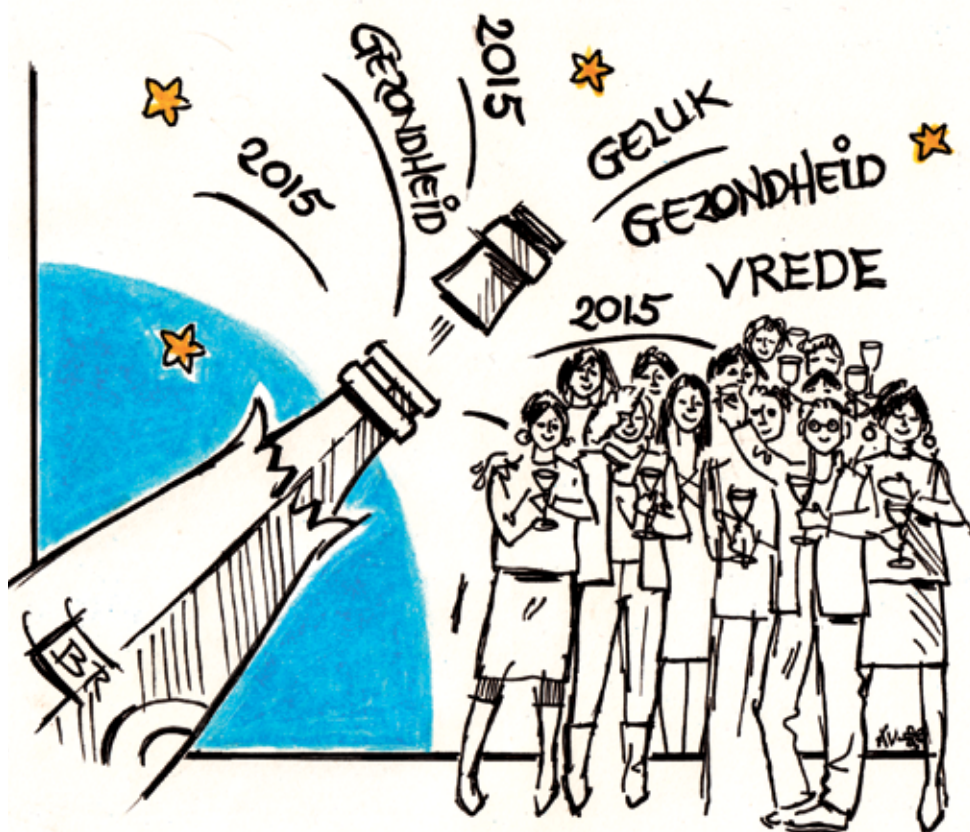 2015
GEZONDHEID
2015
GELUK
GEZONDHEID
VREDE
2015
BR